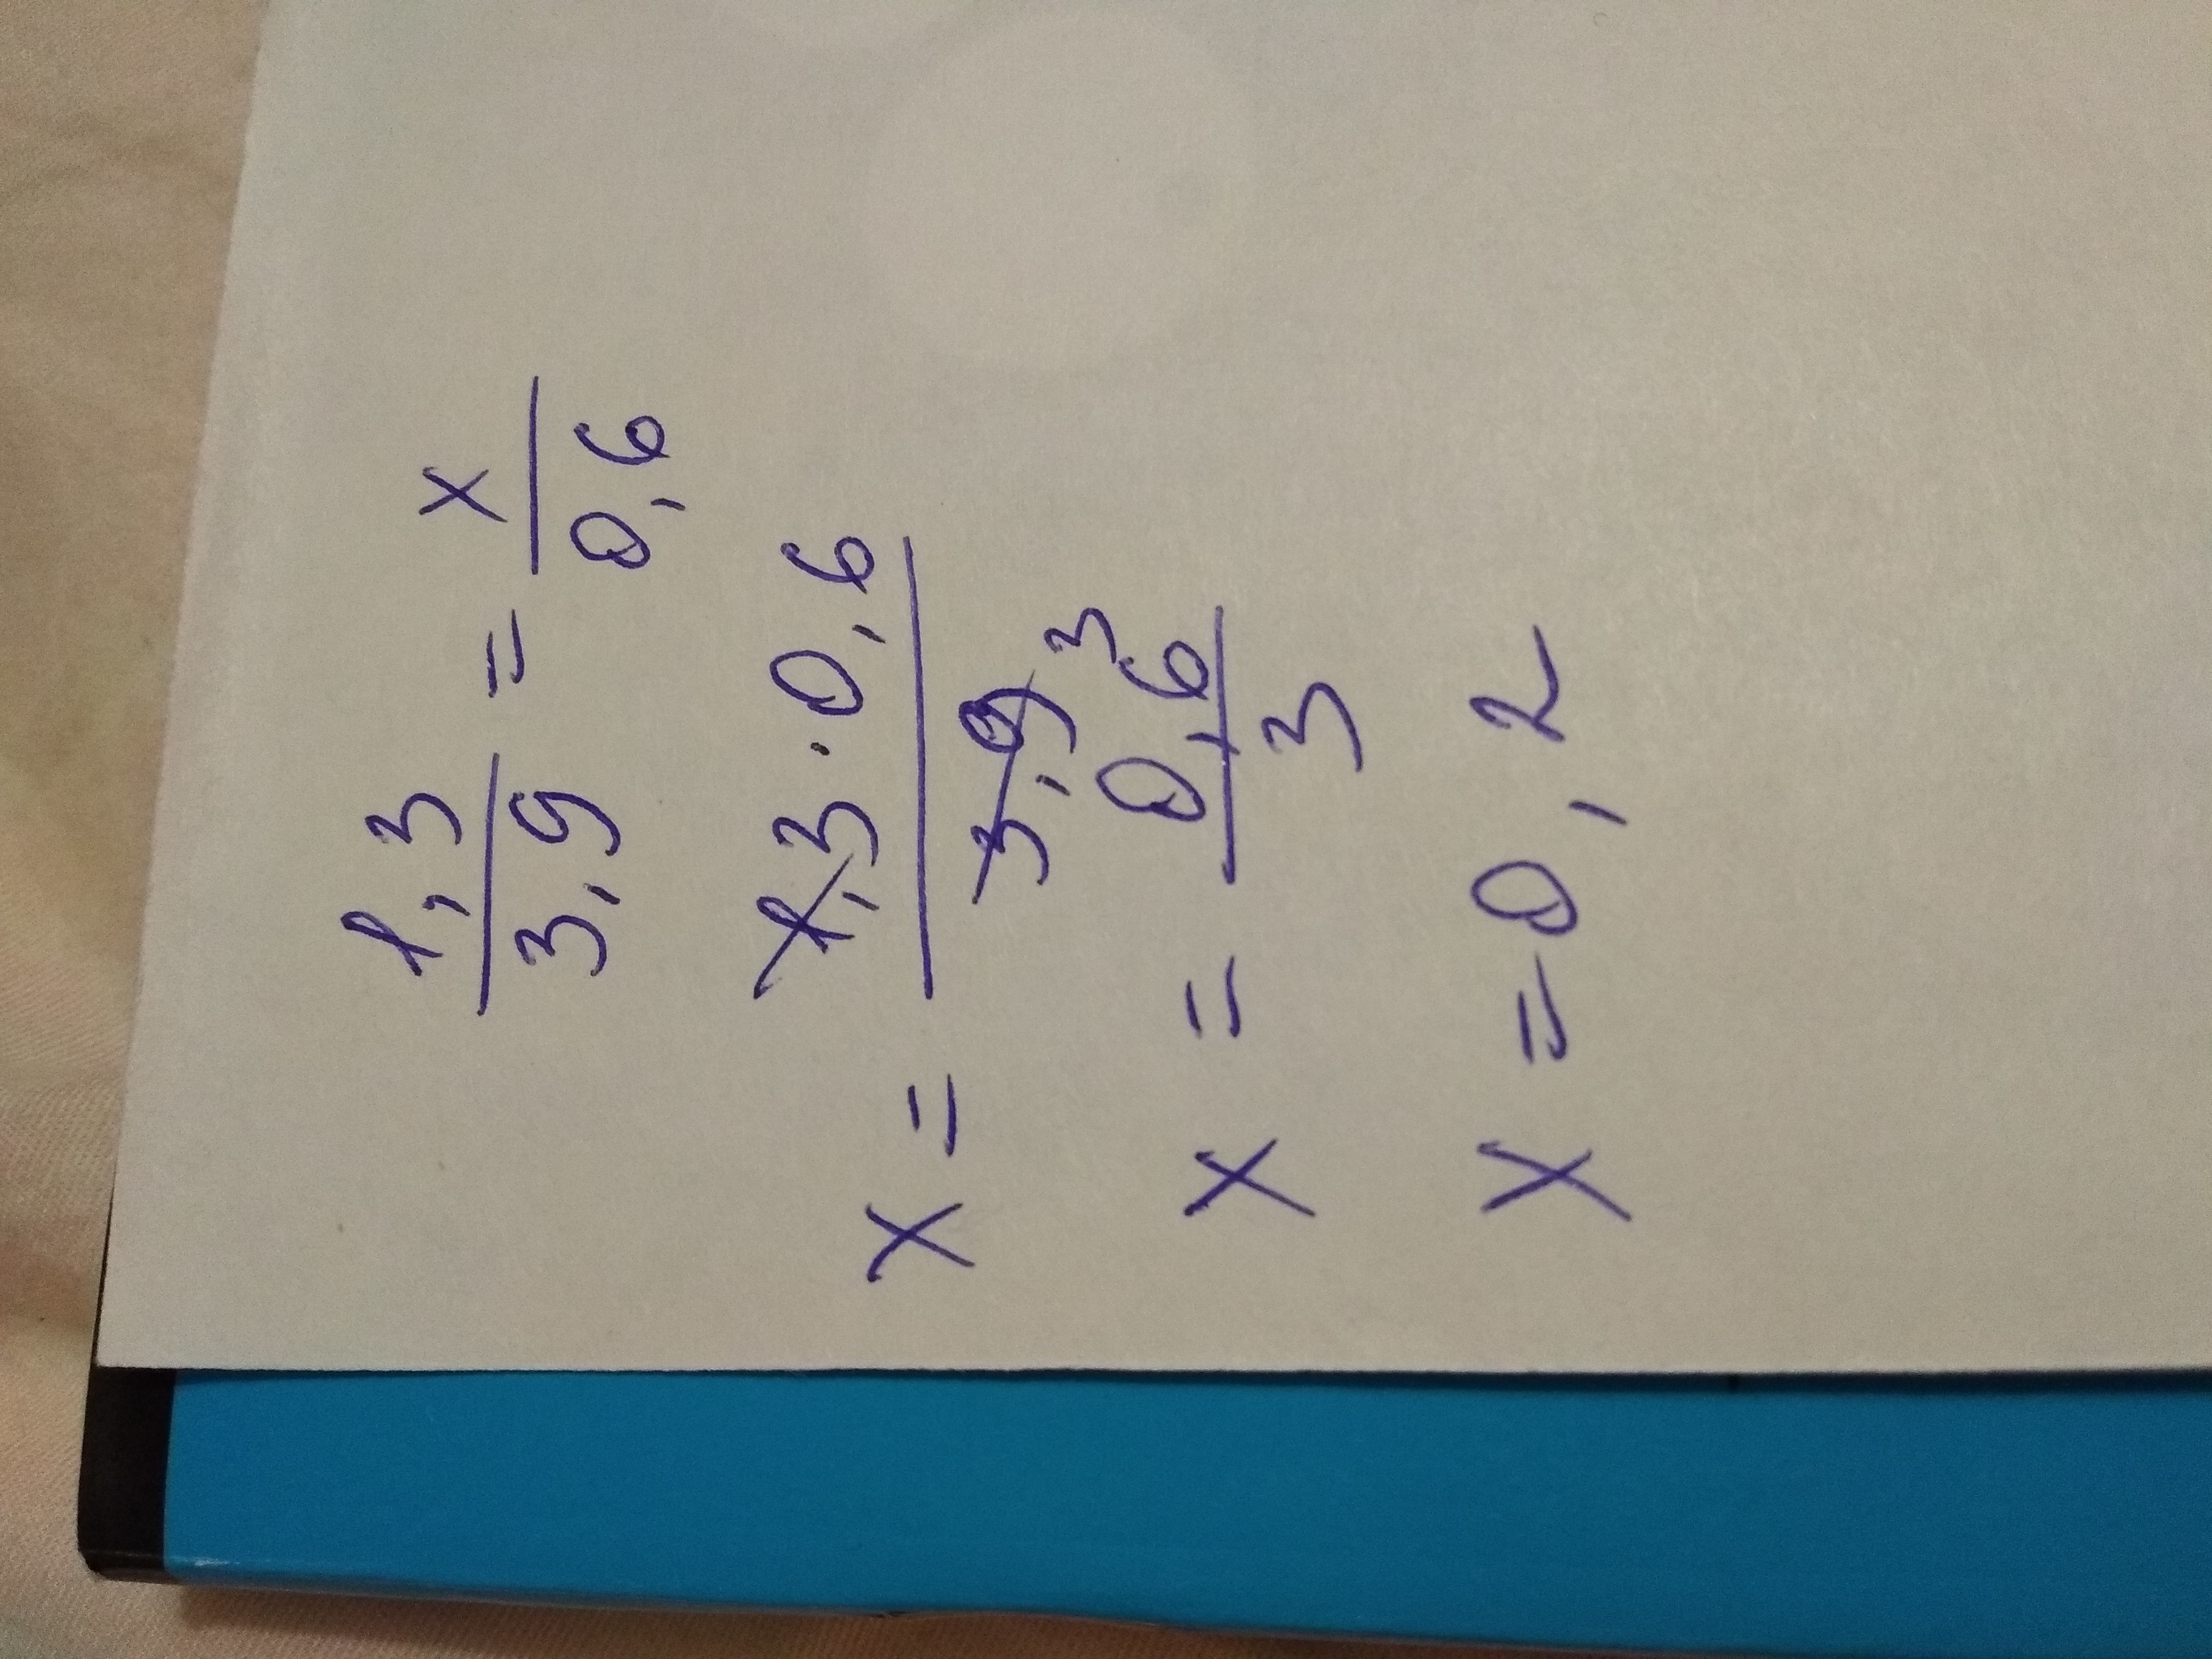 1,3/3,9 = x/0,6
x = 1,3 · 0,6/3,9 3
x = 0,6/3
x = 0,2